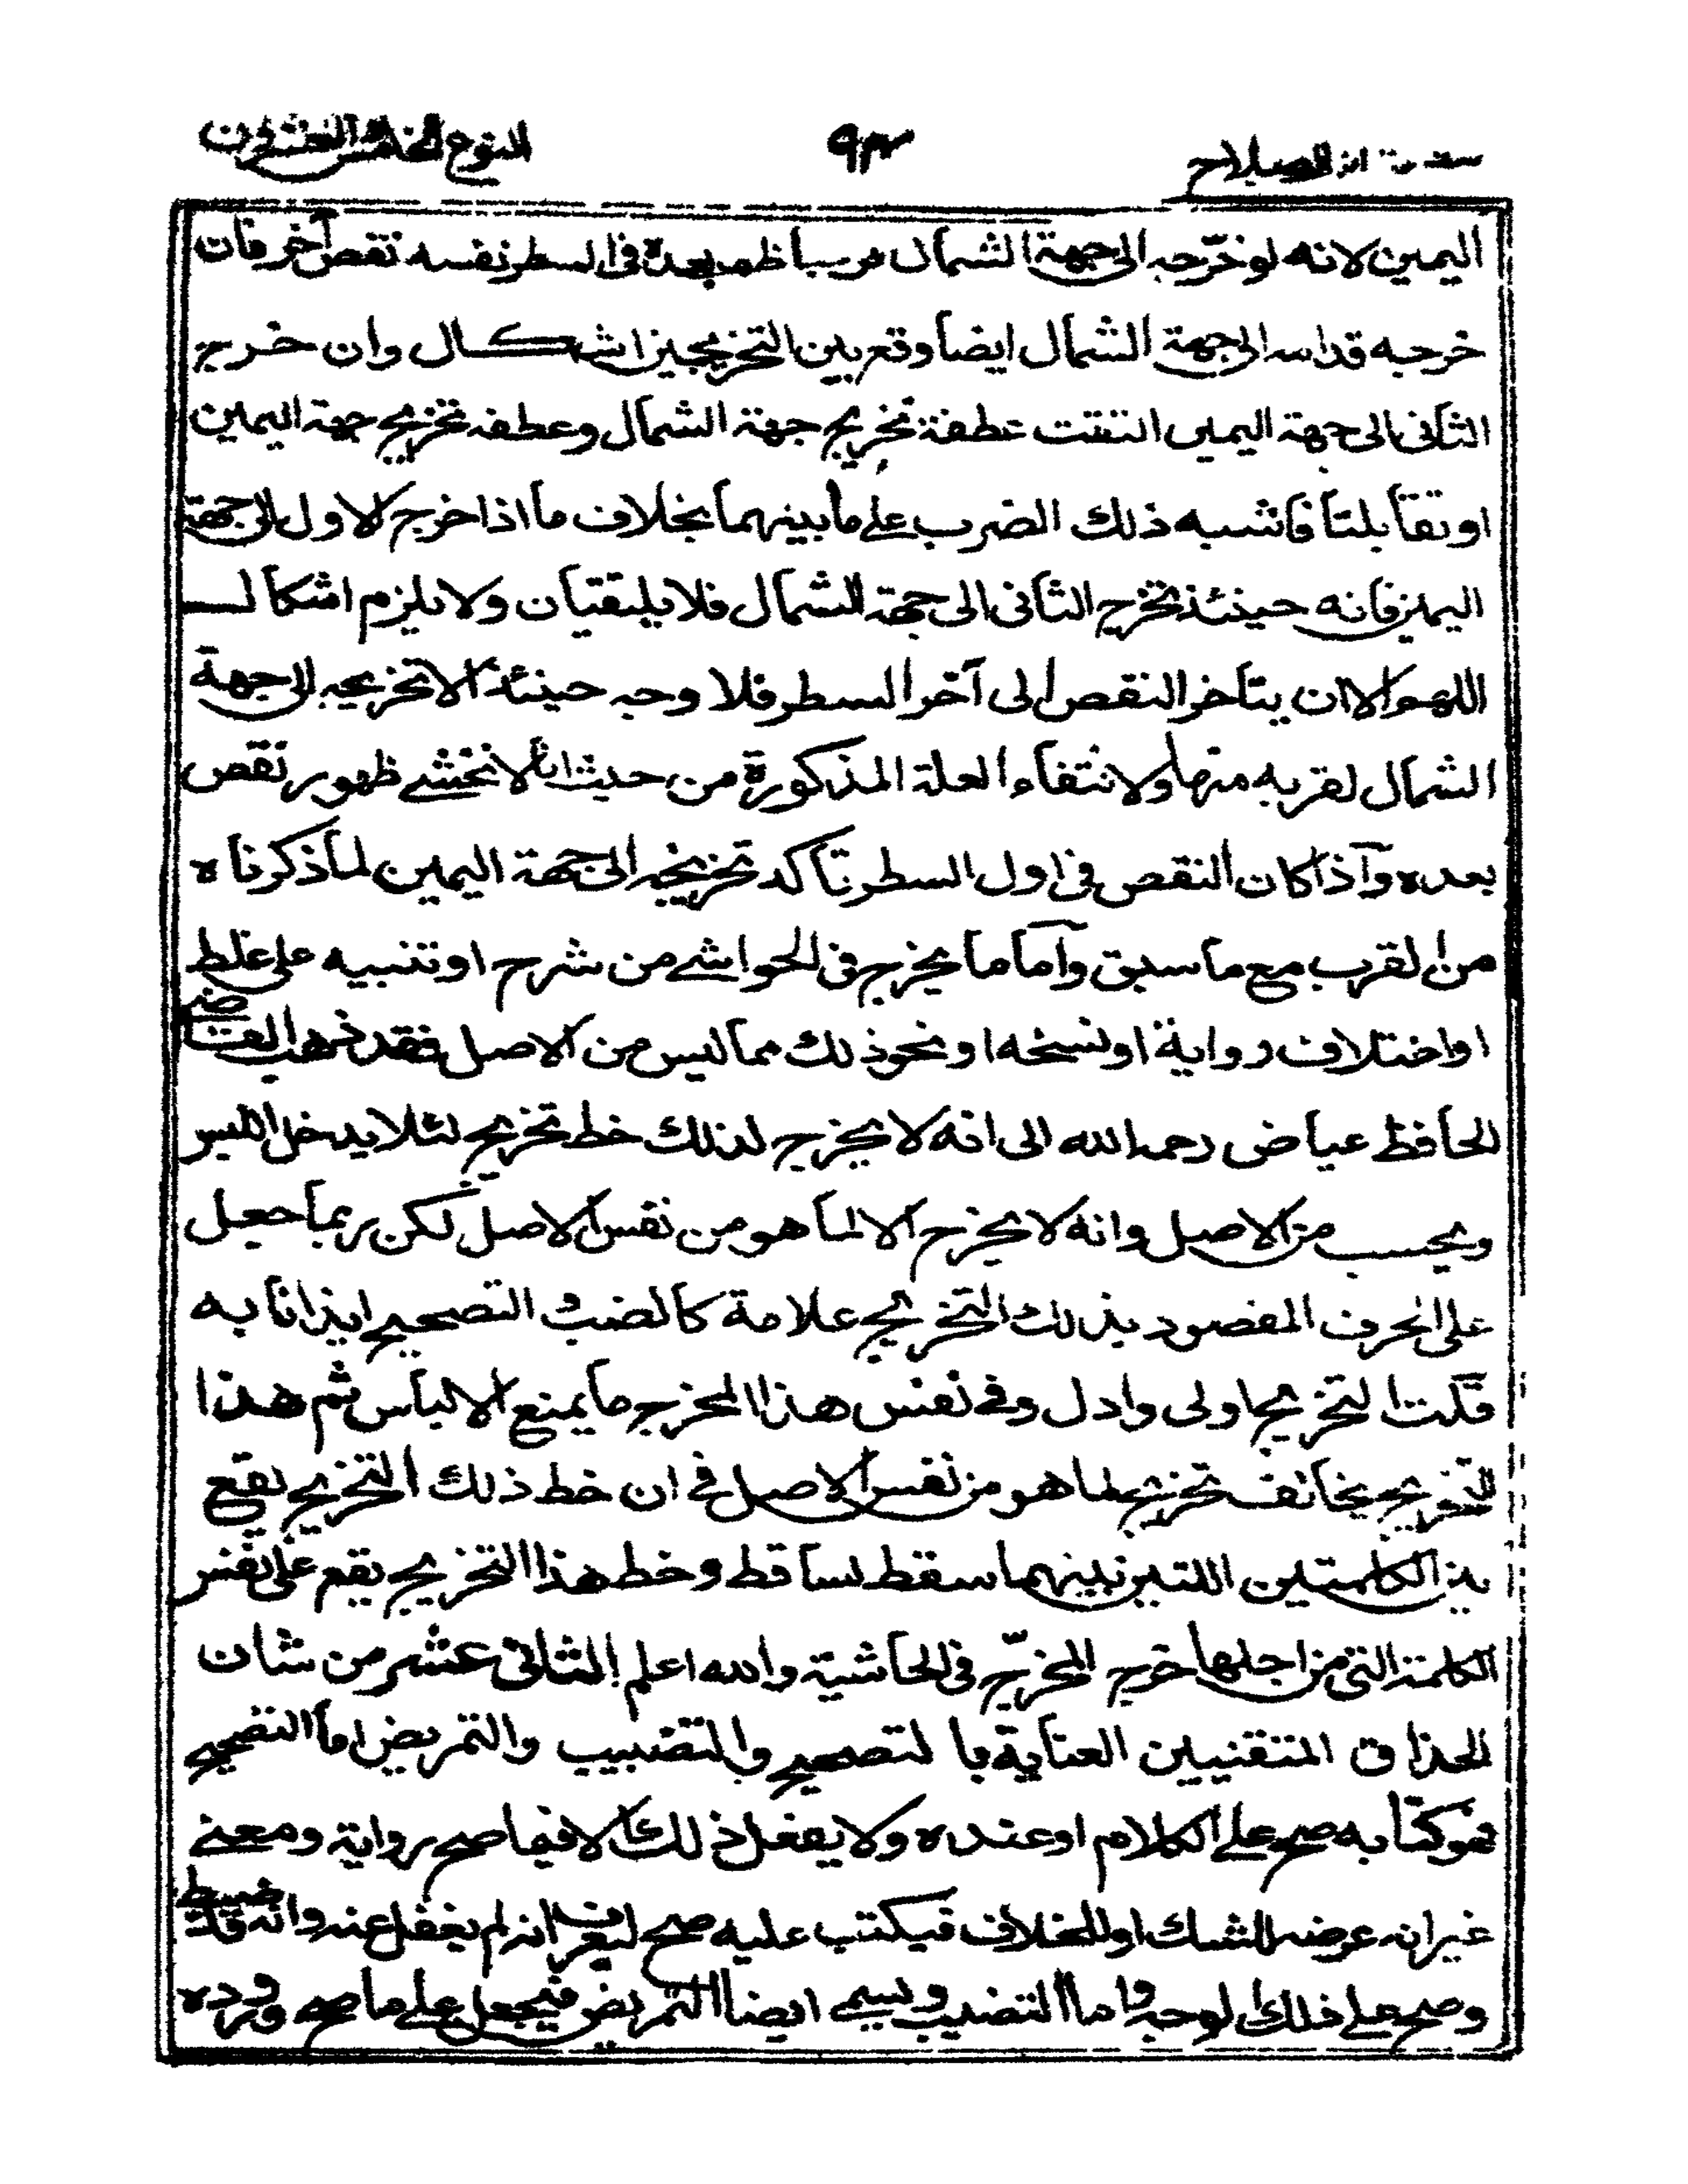 مقدمة ابن الصلاح ٩٣ النوع الخامس والعشرون
اليمين لانه لو خرّجه الى جهة الشمال فربما ظهر بعده فى السطر نفسه نقص آخر فان
خرجه قدامه الى جهة الشمال ايضا وقع بين التخريجين اشكال وان خرج
الثانى الى جهة اليمين التقت عطفة تخريج جهة الشمال وعطفة تخريج جهة اليمين
او تقابلتا فاشبه ذلك الضرب على ما بينهما بخلاف ما اذا خرج الاول الى جهة
اليمين فانه حينئذ تخرج الثانى الى جهة الشمال فلا يلتقيان ولا يلزم اشكال
اللهم الا ان يتاخر النقص الى آخر السطر فلا وجه حينئذ الا تخريجه الى جهة
الشمال لقربه منها ولانتفاء العلة المذكورة من حيث انا لا نخشى ظهور نقص
بعده وآذا كان النقص فى اول السطر تأكد تخريجه الى جهة اليمين لما ذكرناه
من القرب مع ما سبق وآما ما يخرج فى الحواشى من شرح او تنبيه على غلط
او اختلاف رواية او نسخه او نحو ذلك مما ليس من الاصل فقد ذهب القاضى
الحافظ عياض رحمه الله الى انه لا يخرج لذلك خط تخريج لئلا يدخل اللبس
ويحسب من الاصل وانه لا يخرج الا لما هو من نفس الاصل لكن ربما جعل
على الحرف المقصود بذلك التخريج علامة كالضبة و التصحيح ايذانا به
قلت التخريج اولى وادل وفى نفس هذا المخرج ما يمنع الالباس ثم هذا
التخريج يخالف تخريج لما هو من نفس الاصل فى ان خط ذلك التخريج يقع
بين الكلمتين اللتين بينهما سقط الساقط وخط هذا التخريج يقع على نفس
الكلمة التى من اجلها خرج المخرّج فى الحاشية والله اعلم الثانى عشر من شان
الحذاق المتقنيين العناية بالتصحيح والتضبيب والتمريض اما التصحيح
فهو كتابه صح على الكلام او عنده ولا يفعل ذلك الا فيما صح رواية ومعنى
غير انه عرضه للشك او للخلاف فيكتب عليه صح ليعرف انه لم يغفل عنه وانه قد ضبط
وصح على ذلك الوجه واما التضبيب ويسمى ايضا التمريض فيجعل على ما صح وروده